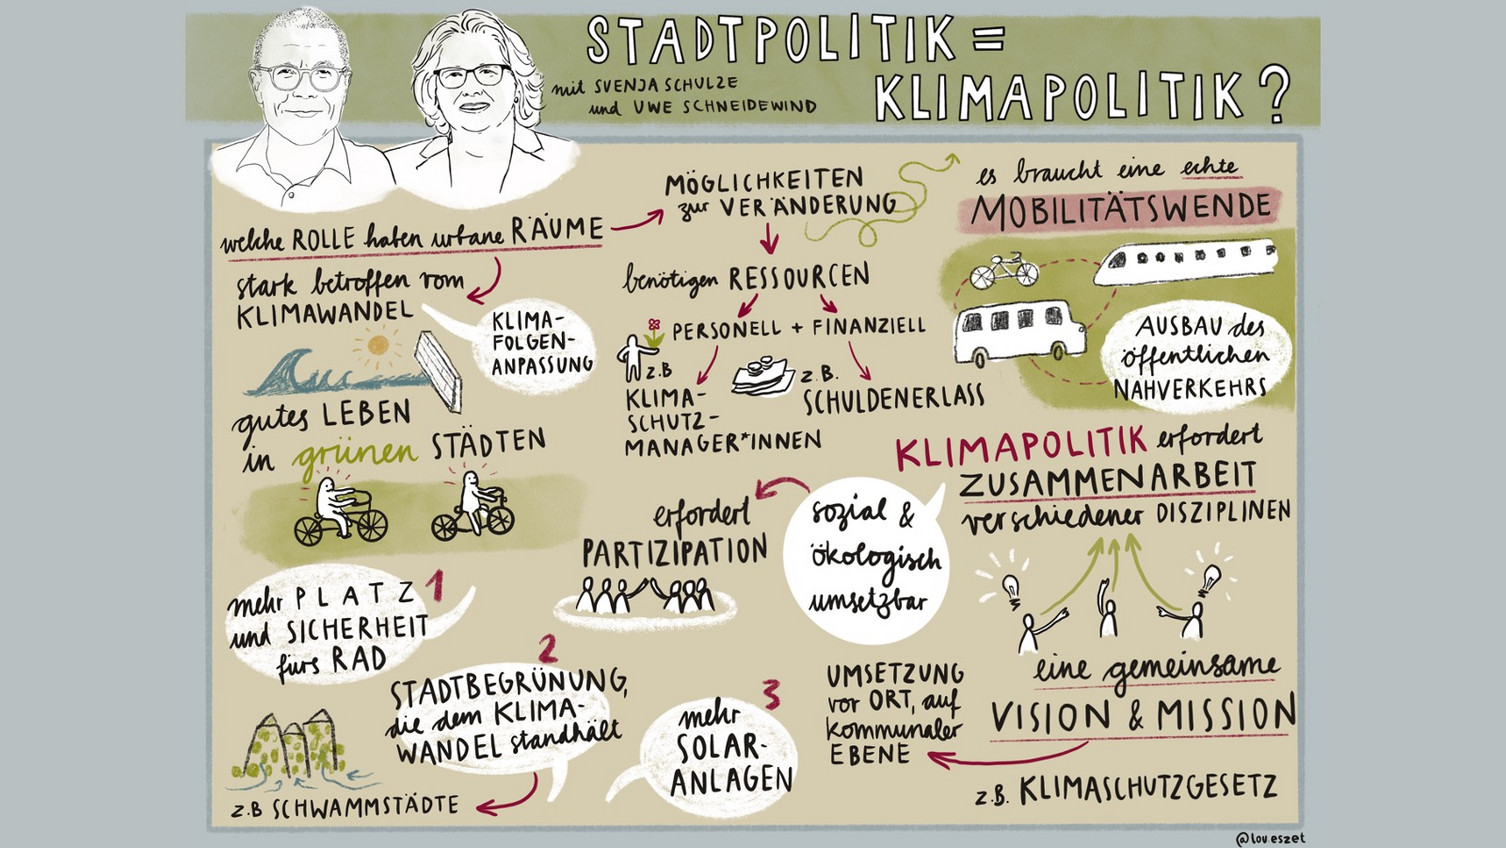 STADTPOLITIK =
KLIMAPOLITIK?
mit SVENJA SCHULZE
und UWE SCHNEIDEWIND
welche ROLLE haben urbane RÄUME
stark betroffen vom
KLIMAWANDEL
KLIMA-
FOLGEN-
ANPASSUNG
gutes LEBEN
in grünen STÄDTEN
1
mehr PLATZ
und SICHERHEIT
fürs RAD
2
STADTBEGRÜNUNG,
die dem KLIMA-
WANDEL standhält
z.B SCHWAMMSTÄDTE
3
mehr
SOLAR-
ANLAGEN
MÖGLICHKEITEN
zur VERÄNDERUNG
benötigen RESSOURCEN
PERSONELL + FINANZIELL
z.B
KLIMA-
SCHUTZ-
MANAGER*INNEN
z.B.
SCHULDENERLASS
es braucht eine echte
MOBILITÄTSWENDE
AUSBAU des
öffentlichen
NAHVERKEHRS
KLIMAPOLITIK erfordert
ZUSAMMENARBEIT
verschiedener DISZIPLINEN
sozial &
ökologisch
umsetzbar
erfordert
PARTIZIPATION
eine gemeinsame
VISION & MISSION
UMSETZUNG
vor ORT, auf
kommunaler
EBENE
z.B. KLIMASCHUTZGESETZ
@lov.eszet